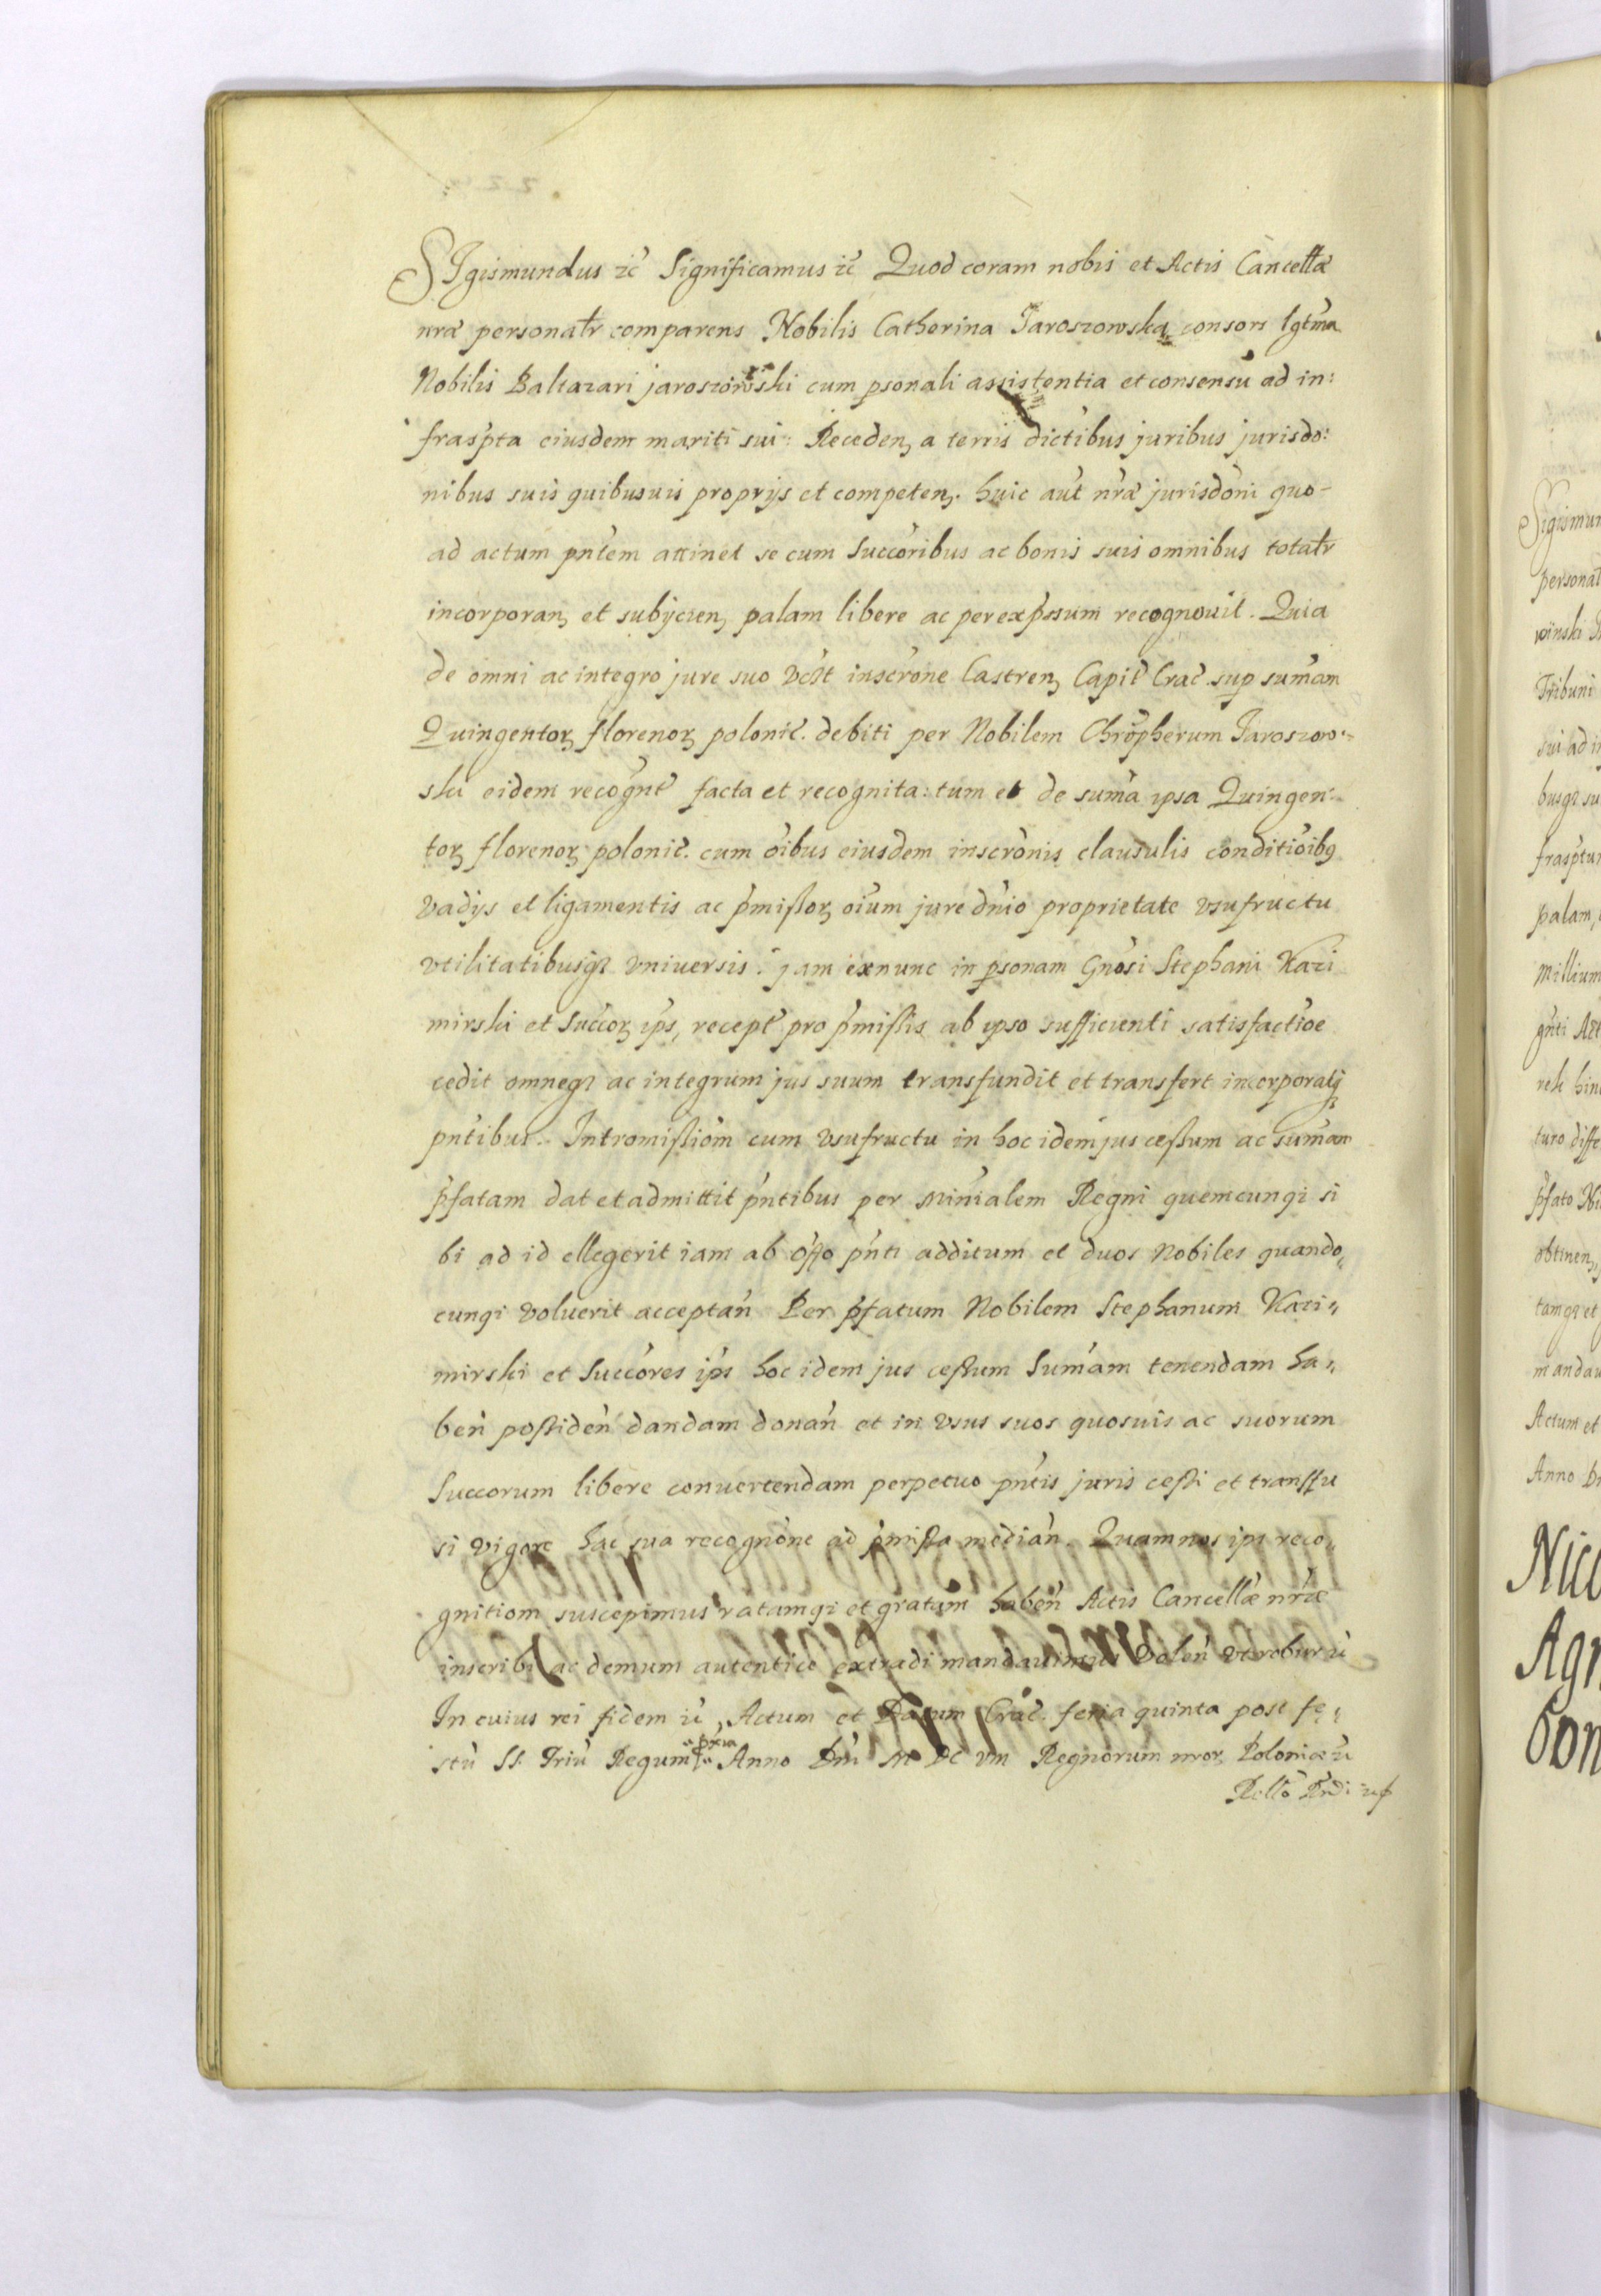 Sigismundus ꝛc̃ Significamus ꝛc̃ Quod coram nobis et Actis Cancellæ
nr̃æ personalr̃ comparens Nobilis Catherina Jaroszowska consors lgt̃ma
Nobilis Baltazari jaroszowski cum psonali assistentia et consensu ad in:
frasp̃ta eiusdem mariti sui: Receden, a terris dictibus juribus jurisdo:
nibus suis quibusuis proprijs et competen,. huic aut̃ nr̃æ jurisdõni quo-
ad actum pñtem attinet se cum Succõribus ac bonis suis omnibus totalr̃
incorporan, et subijcien, palam libere ac per exp̃ssum recognouit. Quia
de omni ac integro jure suo inscr̃one Castren, Capit̃ Crac̃. sup sum̃am
Quingentoꝝ florenoꝝ polonic̃. debiti per Nobilem Chrõpherum Jaroszow-
ski eidem recog̃nt̃ facta et recognita: tum et de sum̃a ipsa Quingen-
toꝝ florenoꝝ polonic̃. cum õibus eiusdem inscrõnis clausulis conditiõibꝫ
vadijs et ligamentis ac p̃mißoꝝ oĩum jure dñio proprietate vsufructu
vtilitatibusqꝫ vniuersis. jam exnunc in psonam Gnõsi Stephani Kazi
mirski et Succoꝝ ip̃s, recept̃ pro p̃mißis ab ipso sufficienti satisfactiõe
cedit omneqꝫ ac integrum jus suum transfundit et transfert incorporatqꝫ
pñtibus. Intromißiõm cum vsufructu in hoc idem jus ceßum ac sum̃am
p̃fatam dat et admittit pñtibus per Minĩalem Regni quemcunqꝫ si
bi ad id ellegerit iam ab off̃o pñti additum et duos Nobiles quando„
cunqꝫ voluerit acceptañ Per p̃fatum Nobilem Stephanum Kazi„
mirski et Succõres ip̃s hoc idem jus ceßum Sum̃am tenendam ha„
beñ poßideñ dandam donañ et in vsus suos quosuis ac suorum
Succorum libere conuertendam perpetuo pñtis juris ceßi et transfu
si vigore hac sua recognõne ad p̃mißa mediañ. Quam nos ip̃s reco„
gnitiom suscepimus ratamqꝫ et gratam habeñ Actis Cancellæ nr̃æ
inscribi ac demum autentice extradi mandauimus Voleñ vt robur ꝛc̃
In cuius rei fidem ꝛc̃, Actum et Datum Crac̃. feria quinta post fe„
stũ SS. Triũ Regum pxia Anno Dñi M DC VIII Regnorum nroꝝ Poloniæ ꝛc̃